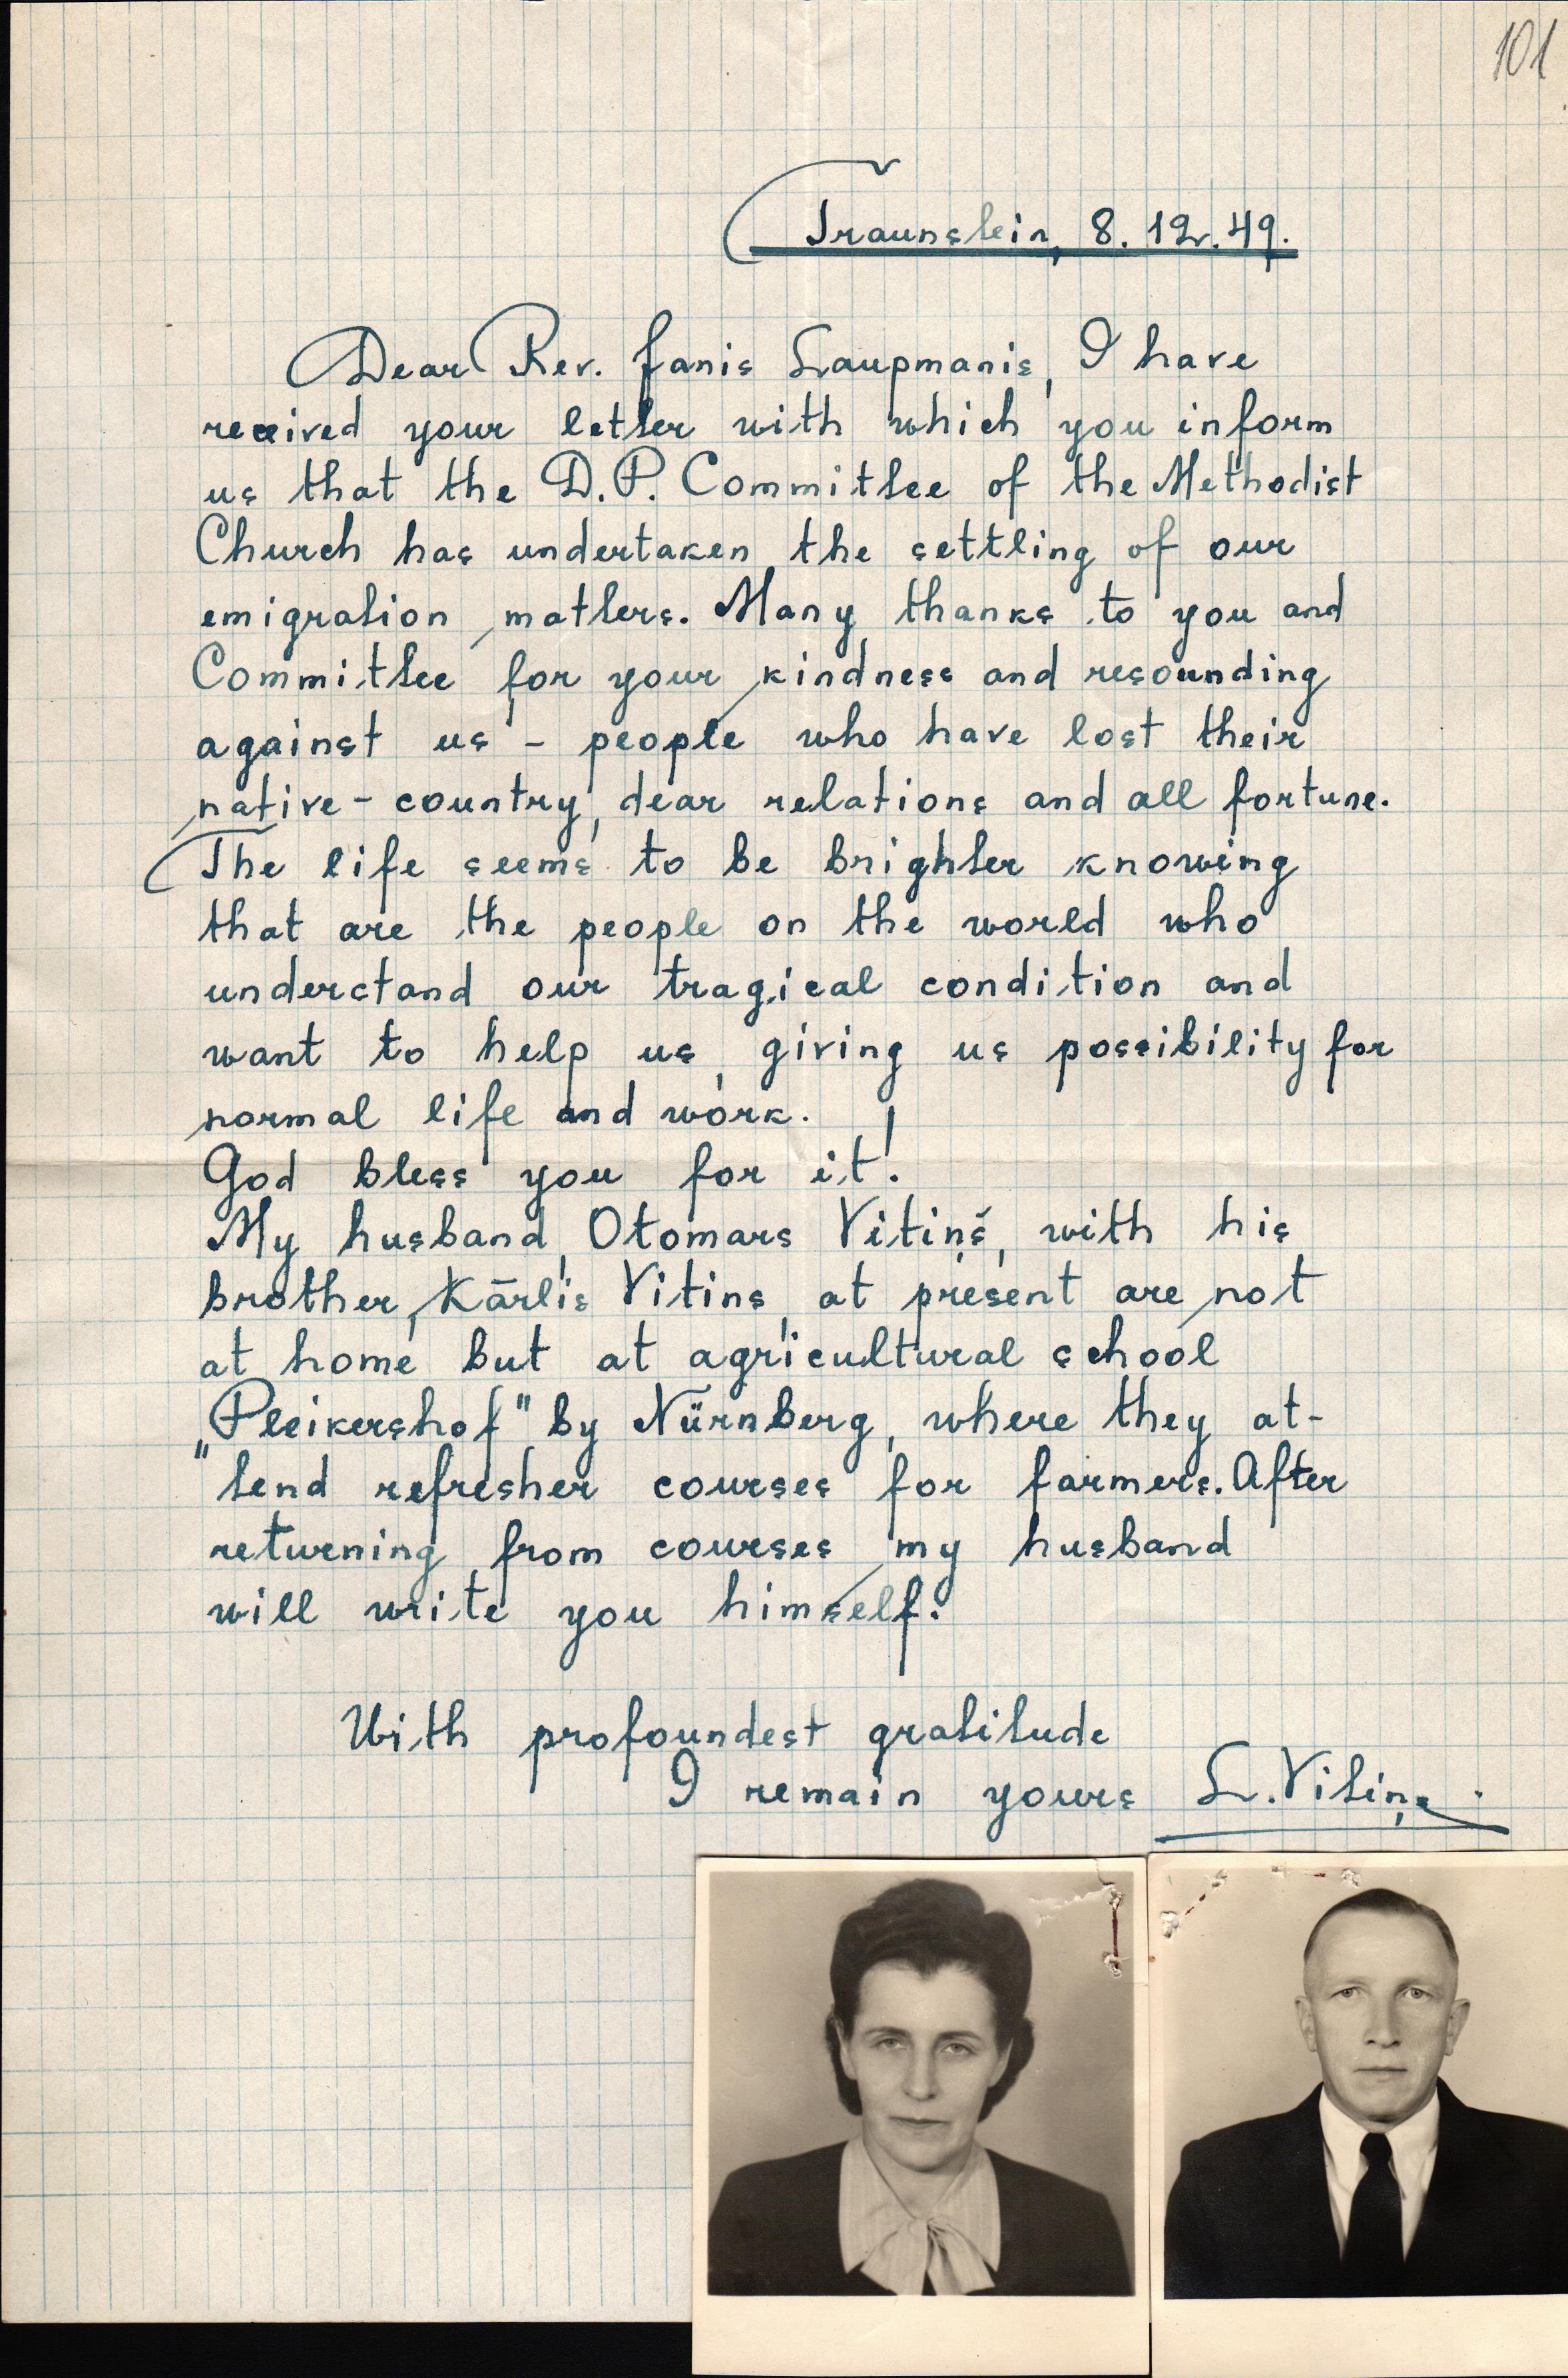 101
Traunstein, 8. 12. 49.
Dear Rev. Janis Laupmanis, I have
received your letter with which you inform
us that the D.P. Committee of the Methodist
Church has undertaken the settling of our
emigration matters. Many thanks to you and
Committee for your kindness and resounding
against us - people who have lost their
native - country, dear relations and all fortune.
The life seems to be brighter knowing
that are the people on the world who
understand our tragical condition and
want to help us, giving us possibility for
normal life and work.
God bless you for it!
My husband, Otomars Vitiņš, with his
brother, Kārlis Vitins, at present are not
at home but at agricultural school
„Pleikershof" by Nürnberg, where they at-
"tend refresher courses for farmers. After
returning from courses my husband
will write you himself.
With profoundest gratitude
I remain yours L. Vitiņa.